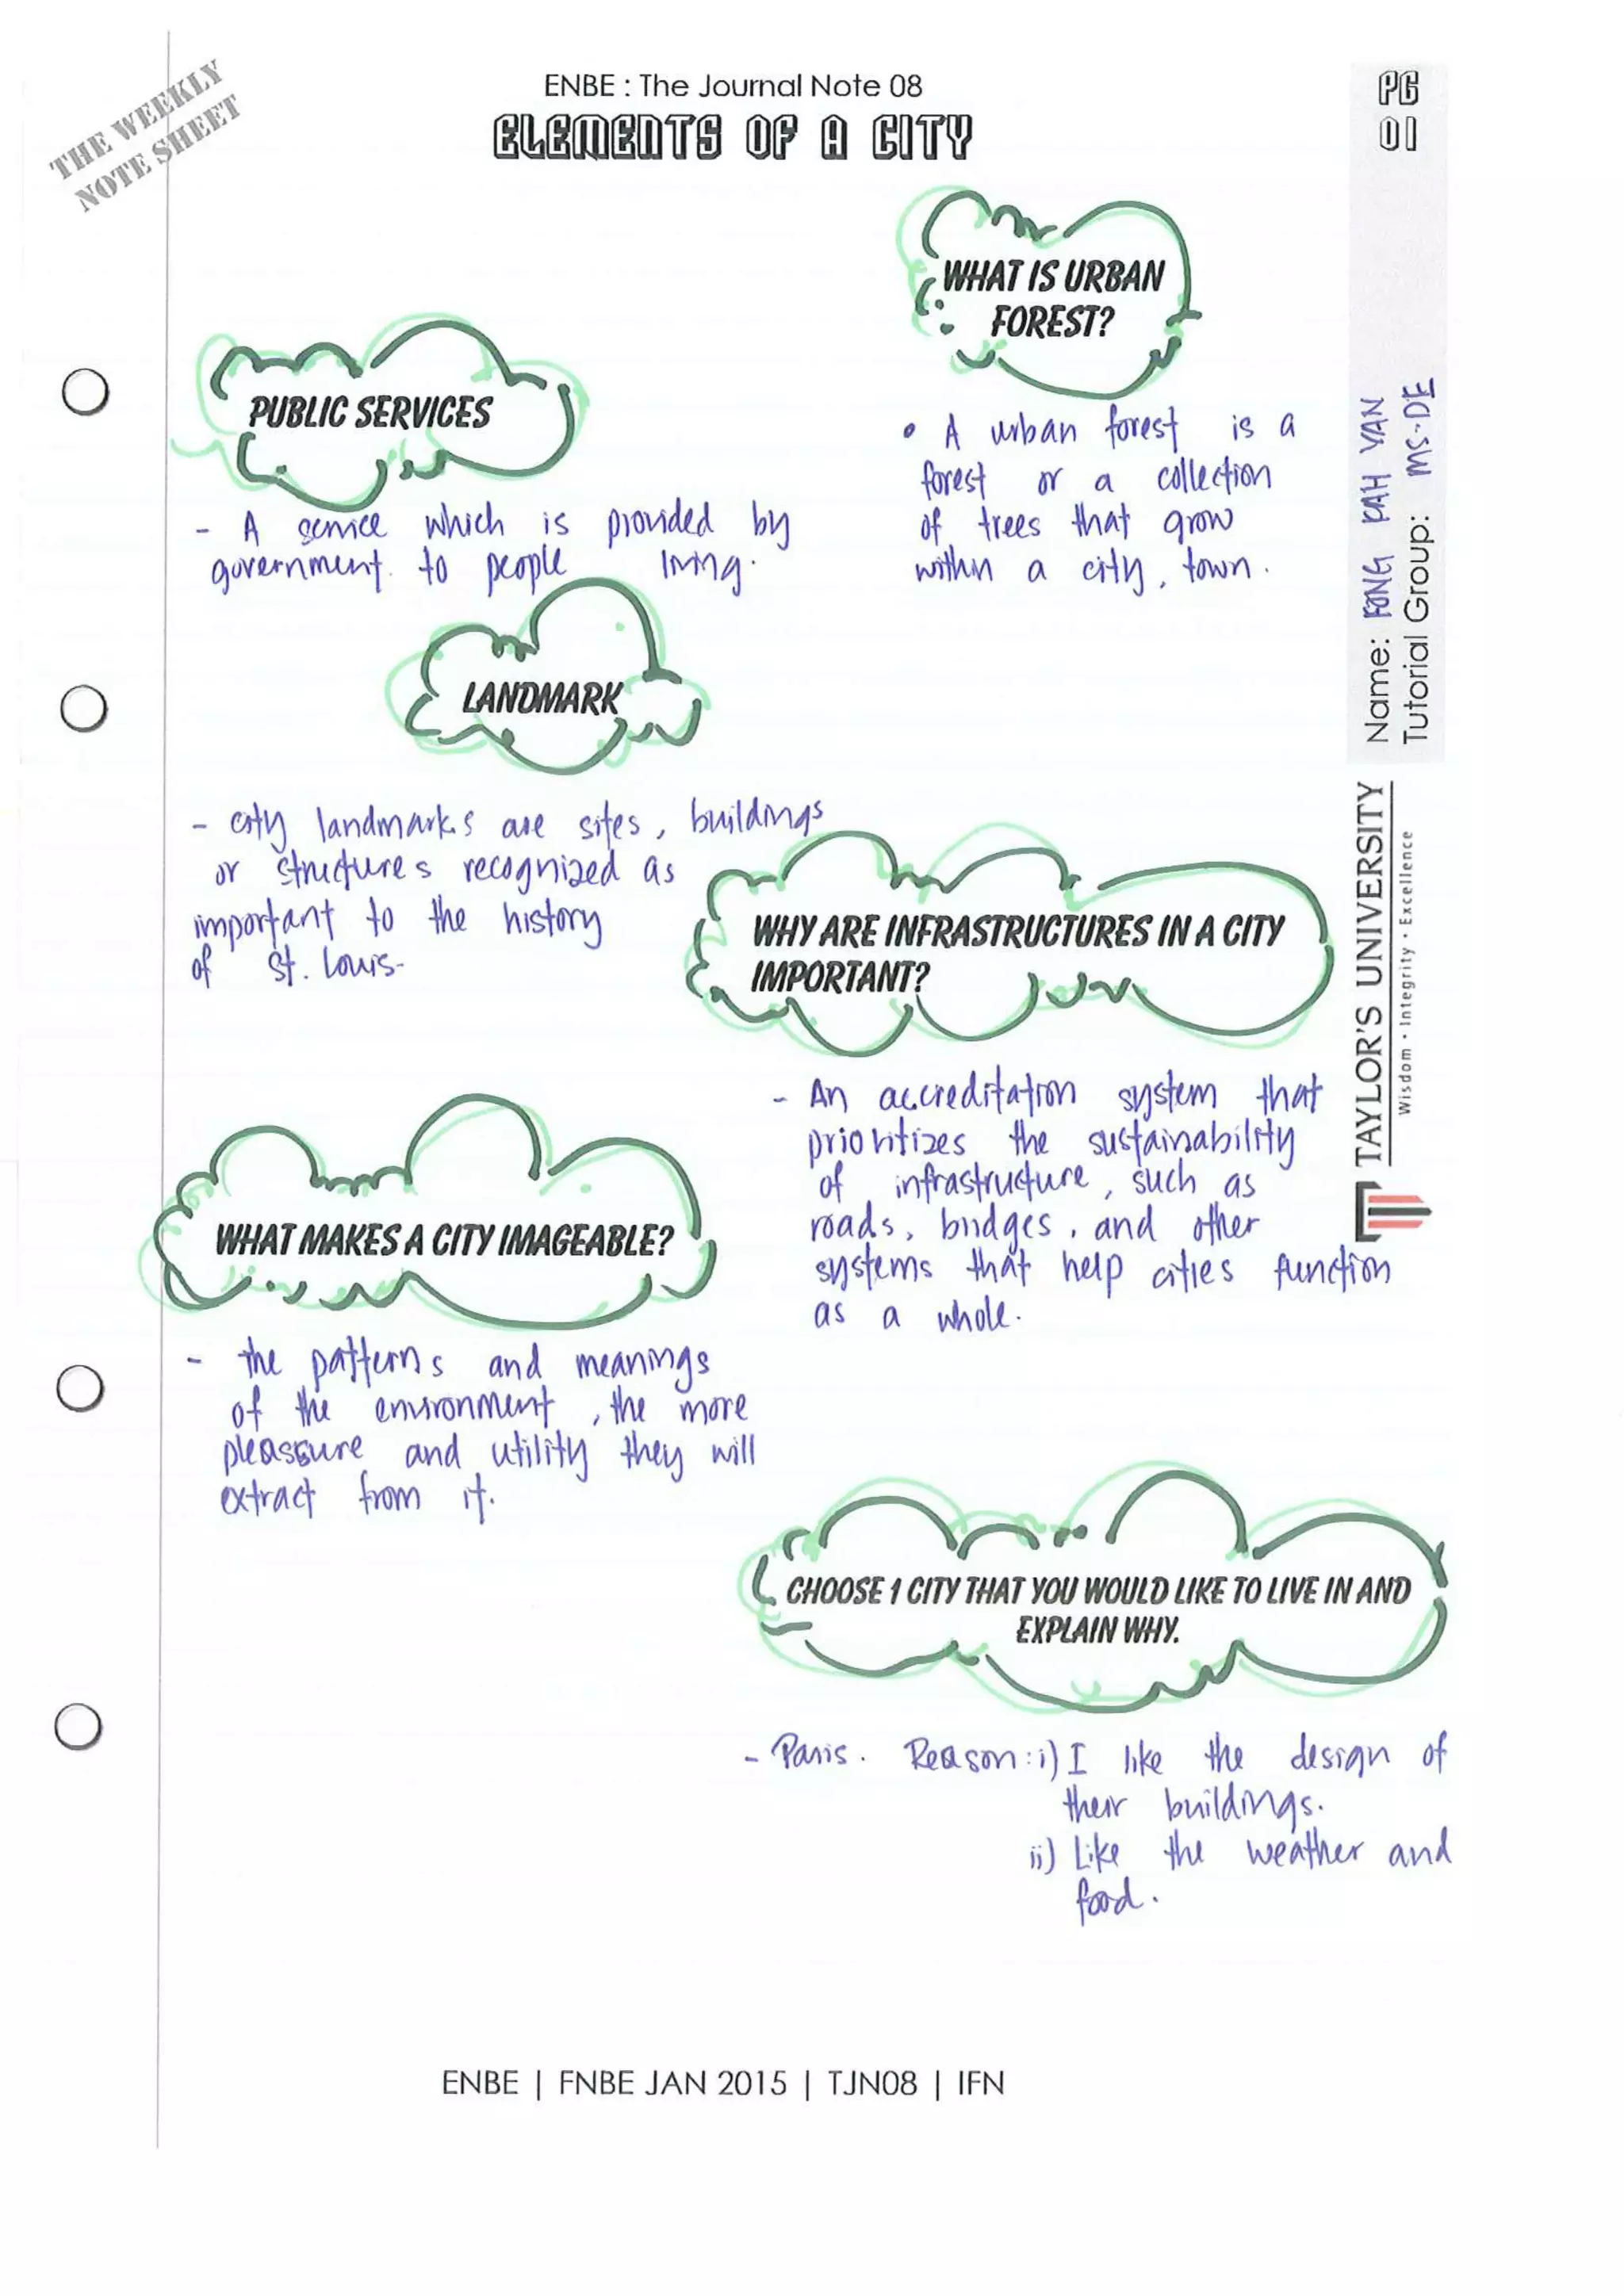 THE WEEKLY
NOTE SHEET
ENBE : The Journal Note 08
ELEMENTS OF A CITY
PG
01
Name: FONG KAH YAN
Tutorial Group: MS-DE
TAYLOR'S UNIVERSITY
Wisdom • Integrity • Excellence
WHAT IS URBAN
FOREST?
• A urban forest is a
forest or a collection
of trees that grow
within a city, town.
PUBLIC SERVICES
- A service which is provided by
government to people living.
LANDMARK
- city landmarks are sites, buildings
or structures recognized as
important to the history
of St. Louis.
WHY ARE INFRASTRUCTURES IN A CITY
IMPORTANT?
- An accreditation system that
prioritizes the sustainability
of infrastructure, such as
roads, bridges, and other
systems that help cities function
as a whole.
WHAT MAKES A CITY IMAGEABLE?
- the patterns and meanings
of the environment, the more
pleassure and utility they will
extract from it.
CHOOSE 1 CITY THAT YOU WOULD LIKE TO LIVE IN AND
EXPLAIN WHY.
- Paris. Reason: i) I like the design of
their buildings.
ii) Like the weather and
food.
ENBE | FNBE JAN 2015 | TJN08 | IFN